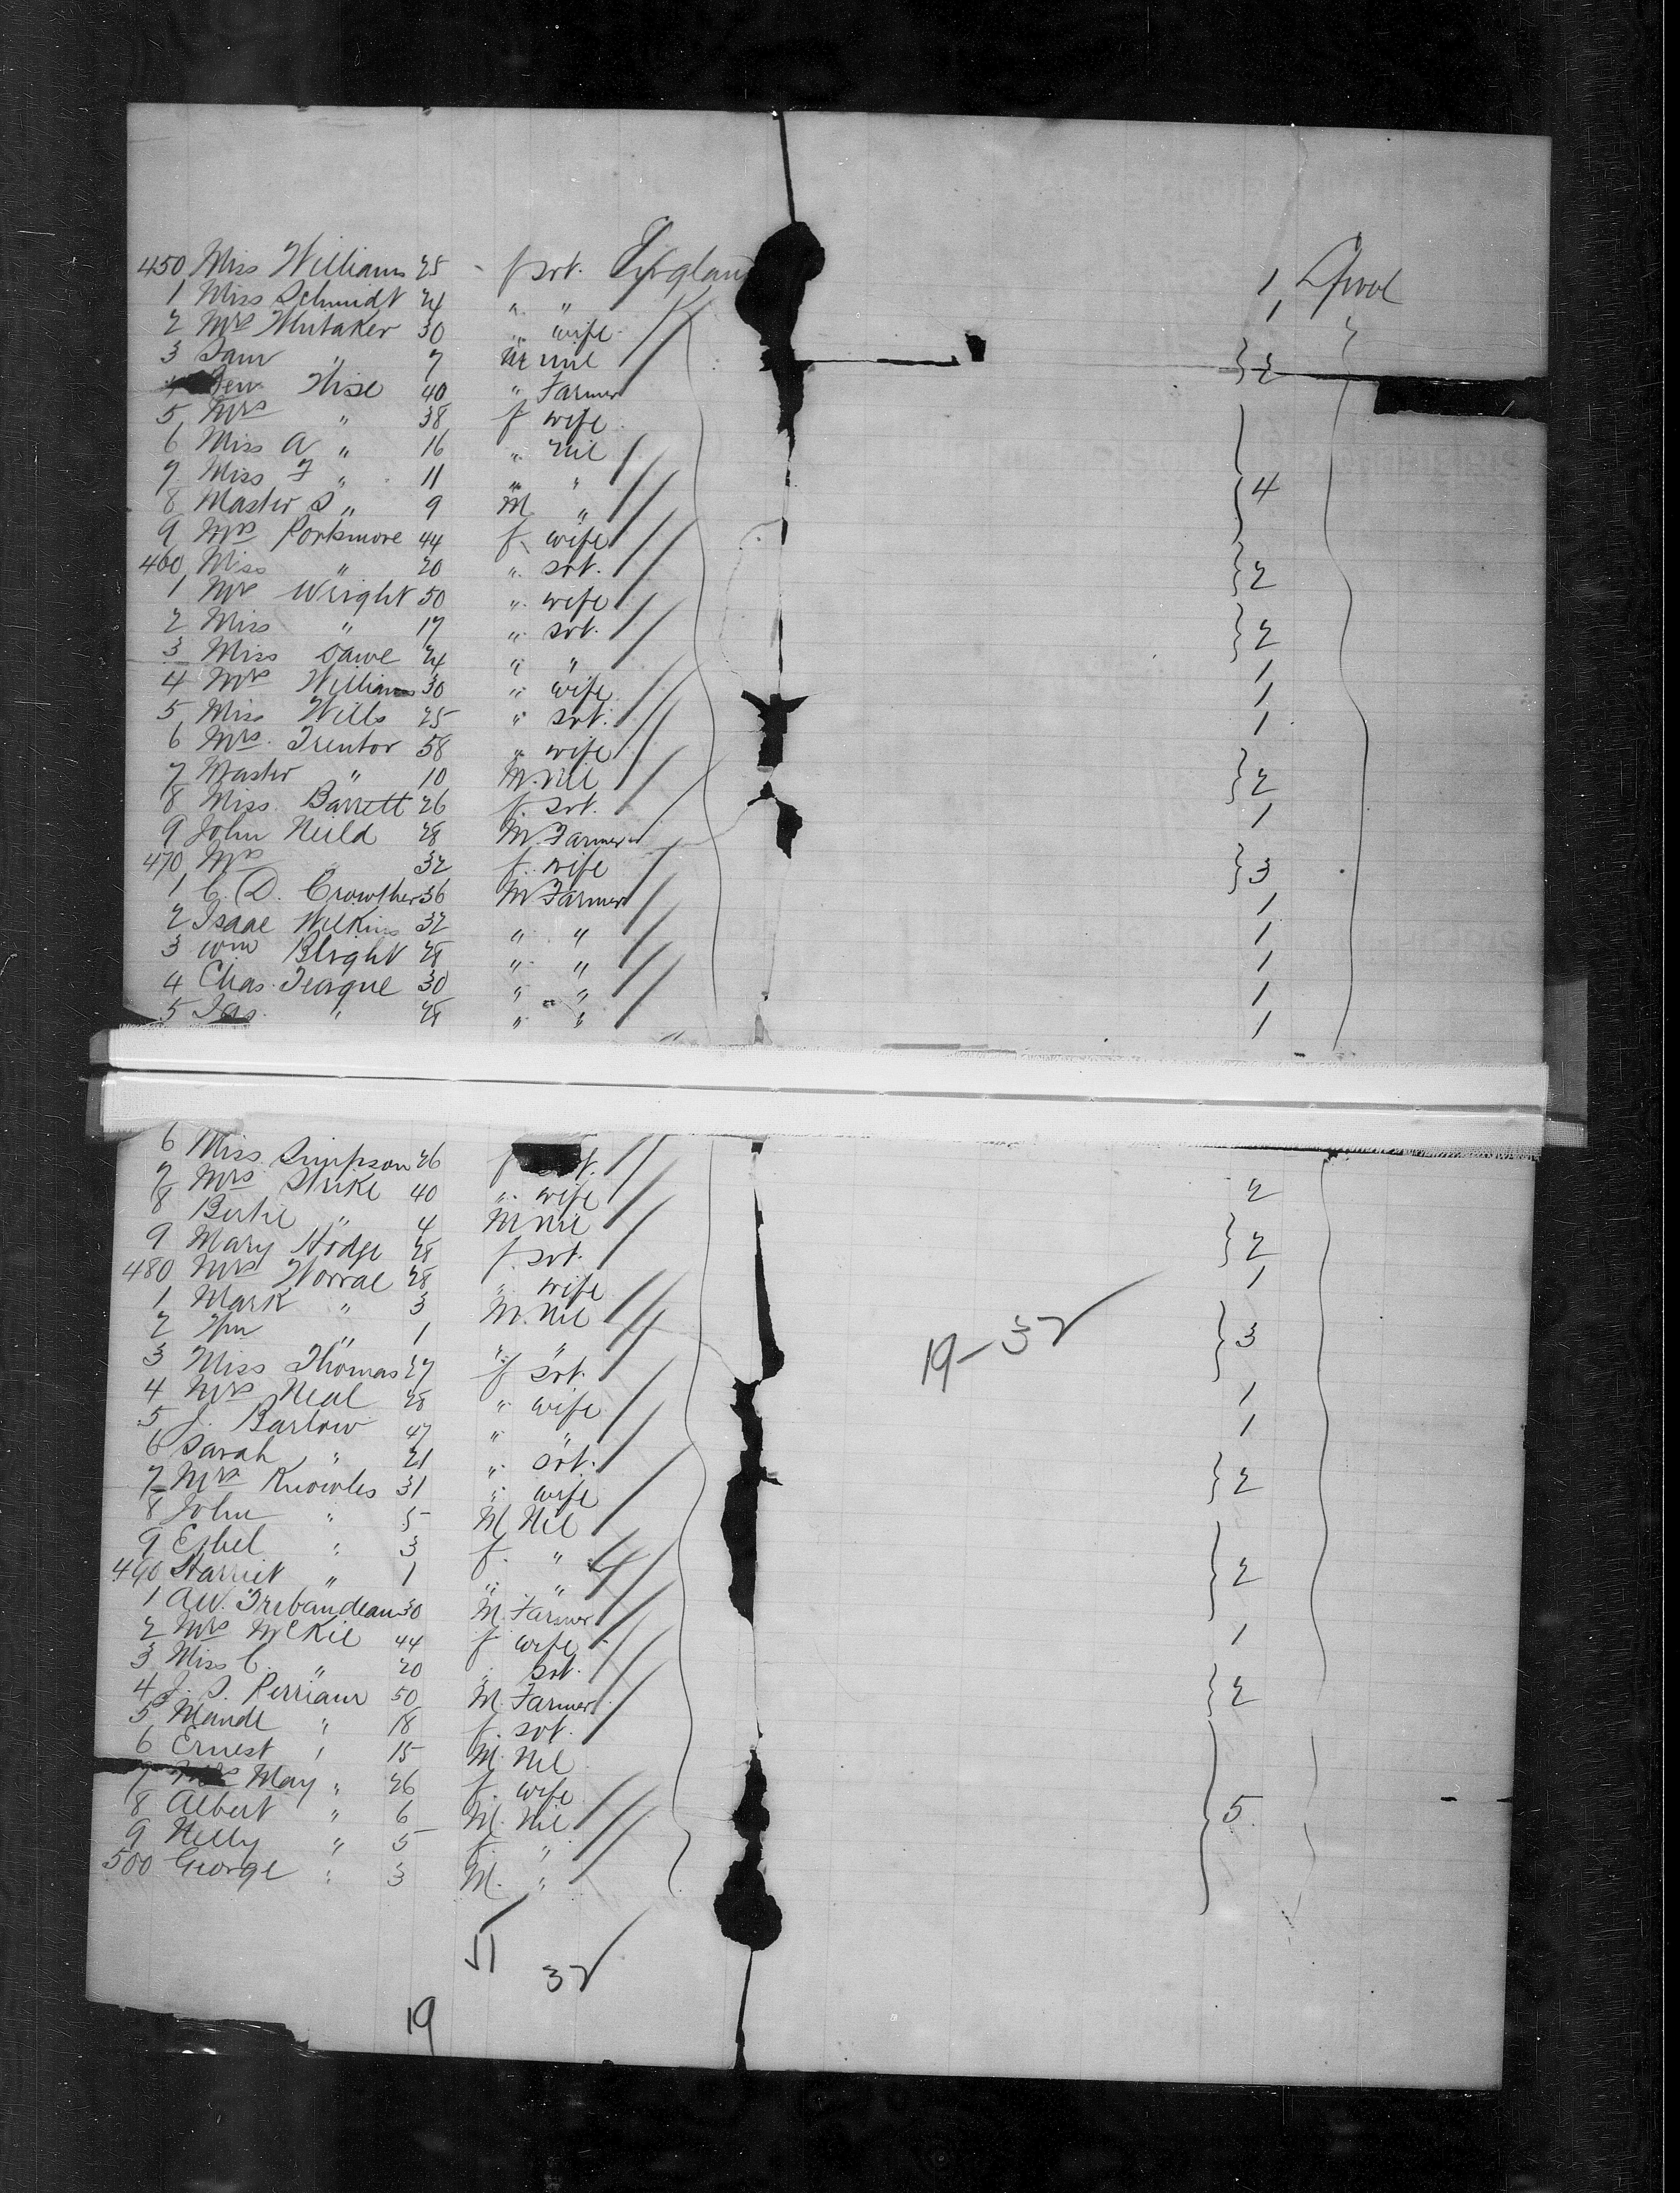 450 Miss Williams 25 - f svt. England 1 L'pool
1 Miss Schmidt 24 " " 1
2 Mrs Whitaker 30 " wife
3 Sam " 7 M nil } 2
Hise 40 " Farmer
5 Mrs " 38 f wife
6 Miss A " 16 " Nil
7 Miss F " 11 " " } 4
8 Master S " 9 M "
9 Mrs Porksmore 44 f. wife
460 Miss " 20 " svt. } 2
1 Mrs Wright 50 " wife
2 Miss " 17 " svt. } 2
3 Miss Dawe 24 " " 1
4 Mrs Williams 30 " wife 1
5 Miss Wills 25 " svt. 1
6 Mrs. Trentor 58 " wife
7 Master " 10 M. Nil } 2
8 Miss Barrett 26 f. svt. 1
9 John Neild 28 M Farmer
470 Mrs " 32 f. wife } 3
1 C. D. Crowther 36 M Farmer 1
2 Isaac Wilkins 32 " " 1
3 Wm Blight 28 " " 1
4 Chas. Teague 30 " " 1
5 Jas. " 28 " " 1
6 Miss Simpson 26 f
7 Mrs Stuke 40 " wife 2
8 Bertie " 4 M Nil
9 Mary Hodge 28 f. svt. } 2
480 Mrs Worral 28 " wife 1
1 Mark " 3 M. Nil
2 Wm " 1 " " } 3
3 Miss Thomas 27 f svt. 19-32
4 Mrs Neal 28 " wife 1
5 J. Barlow 47 " " 1
6 Sarah " 21 " svt.
7 Mrs Knowles 31 " wife } 2
8 John " 5 M Nil
9 Ethel " 3 f. "
490 Harriet " 1 " " } 2
1 Trebandeau 30 M. Farmer
2 Mrs McKie 44 f wife 1
3 Miss C. " 20 " svt.
4 J. S. Perriam 50 M. Farmer } 2
5 Maude " 18 f. svt.
6 Ernest " 15 M. Nil
7 Mrs May " 26 f. wife
8 Albert " 6 M. Nil } 5
9 Nelly " 5 f. "
500 George " 3 M. "
51
32
19